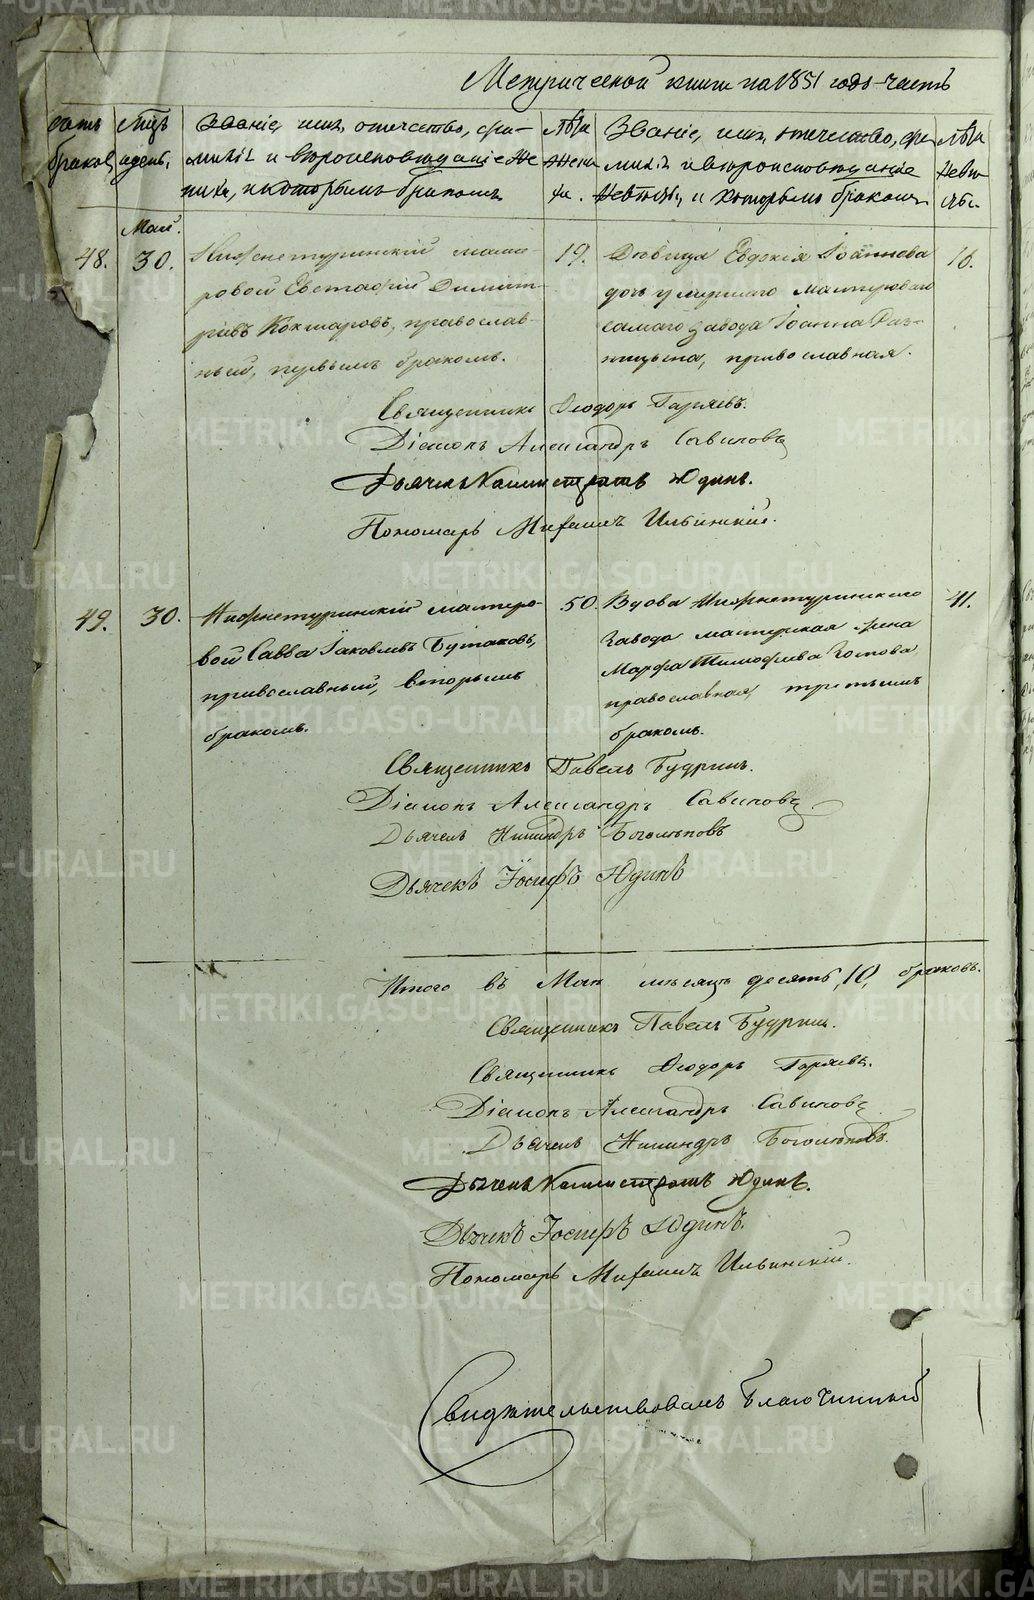 Метрической книги на 1851 годъ часть
Счетъ браковъ,
Мѣсяцъ и день,
Званіе, имя, отечество, фамилія и вѣроисповѣданіе жениха, и которымъ бракомъ
Лѣта жениха.
Званіе, имя, отечество, фамилія и вѣроисповѣданіе невѣсты, и которымъ бракомъ
Лѣта невѣсты.
Май.
48.
30.
Нижнетуринскій масте-
ровой Евстафій Димит-
ріевъ Кокшаровъ, православ-
ный, первымъ бракомъ.
19.
Дѣвица Евдокія Іоаннова
дочь умершаго мастероваго
самаго завода Іоанна
православная.
16.
Священникъ Ѳеодоръ Гаряевъ.
Діаконъ Александръ Савиновъ
Дьячекъ Каллистратъ Юдинъ.
Пономарь Михаилъ Ильинскій.
49.
30.
Нижнетуринскій мастеро-
вой Савва Іаковлевъ Бутаковъ,
православный, вторымъ
бракомъ.
50.
Вдова Нижнетуринскаго
завода мастерская жена
Марфа Тимофеева
православная, третьимъ
бракомъ.
41.
Священникъ Павелъ Будринъ.
Діаконъ Александръ Савиновъ
Дьячекъ Никандръ Боголѣповъ
Дьячекъ Іосифъ Юдинъ
Итого въ Маѣ мѣсяцѣ десять, 10, браковъ.
Священникъ Павелъ Будринъ.
Священникъ Ѳеодоръ Гаряевъ.
Діаконъ Александръ Савиновъ
Дьячекъ Никандръ Боголѣповъ.
Дьячекъ Каллистратъ Юдинъ.
Дьячекъ Іосифъ Юдинъ.
Пономарь Михаилъ Ильинскій.
Свидѣтельствовалъ Благочинный
METRIKI.GASO-URAL.RU